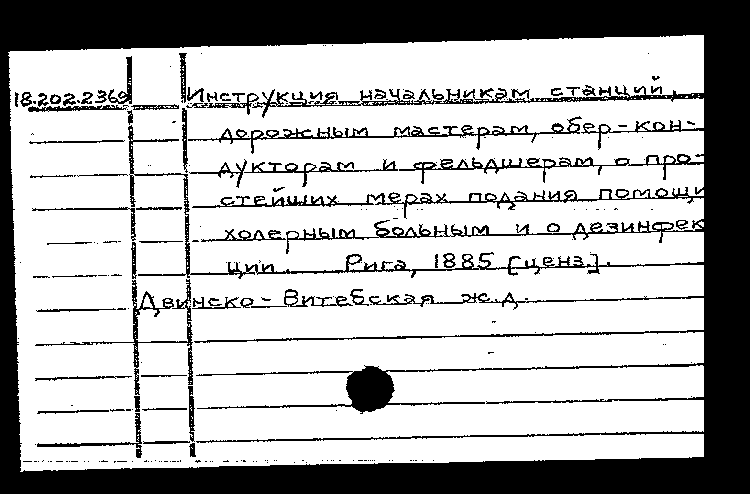 18.202.2369 Инструкция начальникам станций,
дорожным мастерам, обер-кон-
дукторам и фельдшерам, о про-
стейших мерах подания помощи
холерным больным и о дезинфек
ции. Рига, 1885 [ценз].
Двинско-Витебская ж.д.